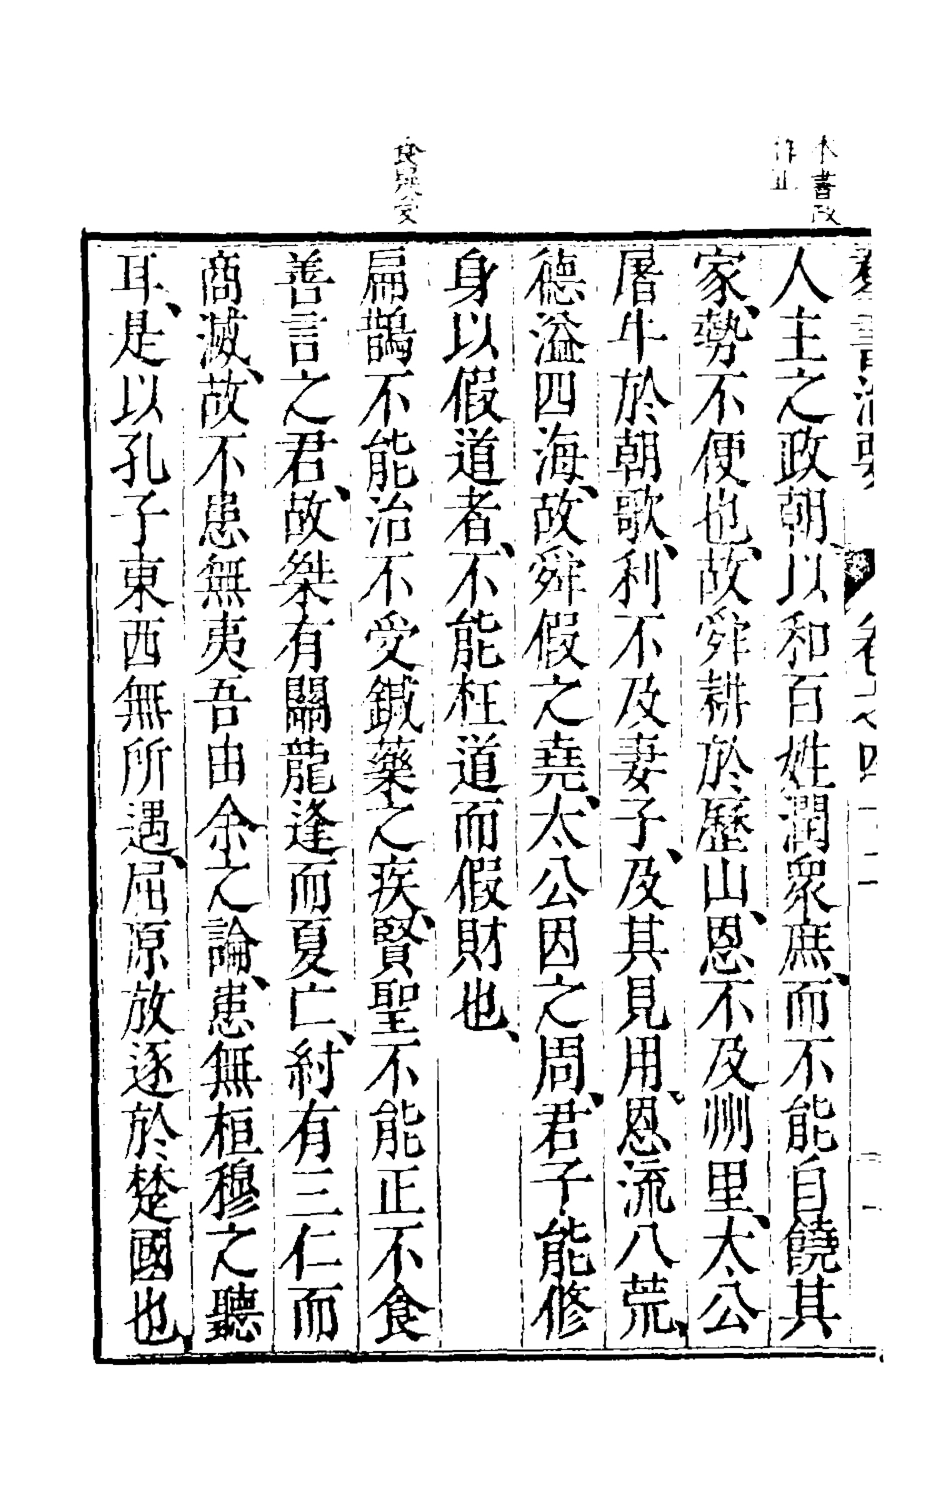 本書政
作正
食疑受
羣書治要 卷之四十二
人主之政朝、以和百姓潤衆庶、而不能自饒其
家、勢不便也、故舜耕於歷山、恩不及州里、太公
屠牛於朝歌、利不及妻子、及其見用、恩流八荒、
德溢四海、故舜假之堯、太公因之周、君子能修
身以假道者、不能枉道而假財也、
扁鵲不能治不受鍼藥之疾、賢聖不能正不食
善言之君、故桀有關龍逢而夏亡、紂有三仁而
商滅、故不患無夷吾由余之論、患無桓穆之聽
耳、是以孔子東西無所遇、屈原放逐於楚國也、